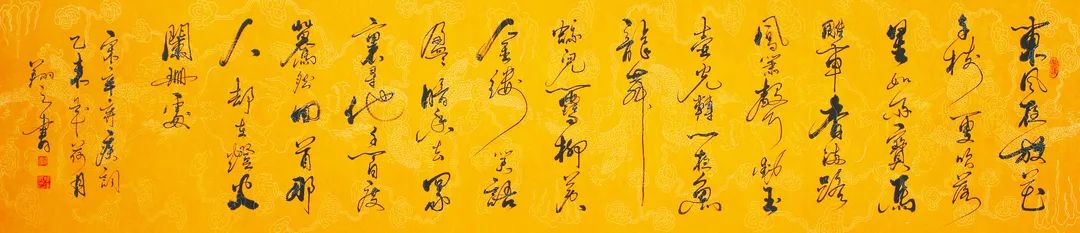 東風夜放花
千樹更吹落
星如雨寶馬
雕車香滿路
鳳簫聲動玉
壺光轉一夜魚
龍舞
蛾兒雪柳黃
金縷笑語
盈盈暗香去眾
裏尋他千百度
驀然回首那
人却在燈火
闌珊處
宋辛弃疾詞
乙未年荷月
翔之書